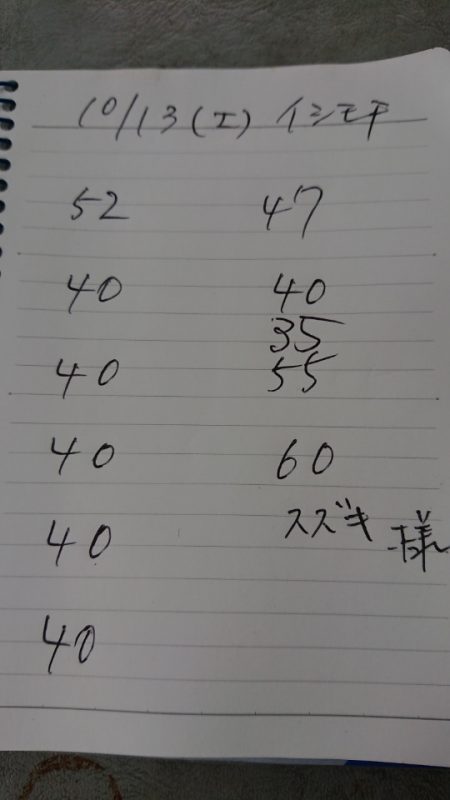 10/13(工) イシモチ
52 47
40 40
35
40 55
40 60
スズキ様
40
40